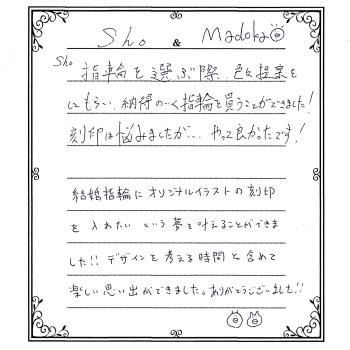 Sho & Madoka
Sho 指輪を選ぶ際、色々提案を
してもらい、納得のいく指輪を買うことができました!
刻印は悩みましたが... やって良かったです!
結婚指輪にオリジナルイラストの刻印
を入れたいという夢を叶えることができま
した!! デザインを考える時間も含めて
楽しい思い出ができました。ありがとうございました!!